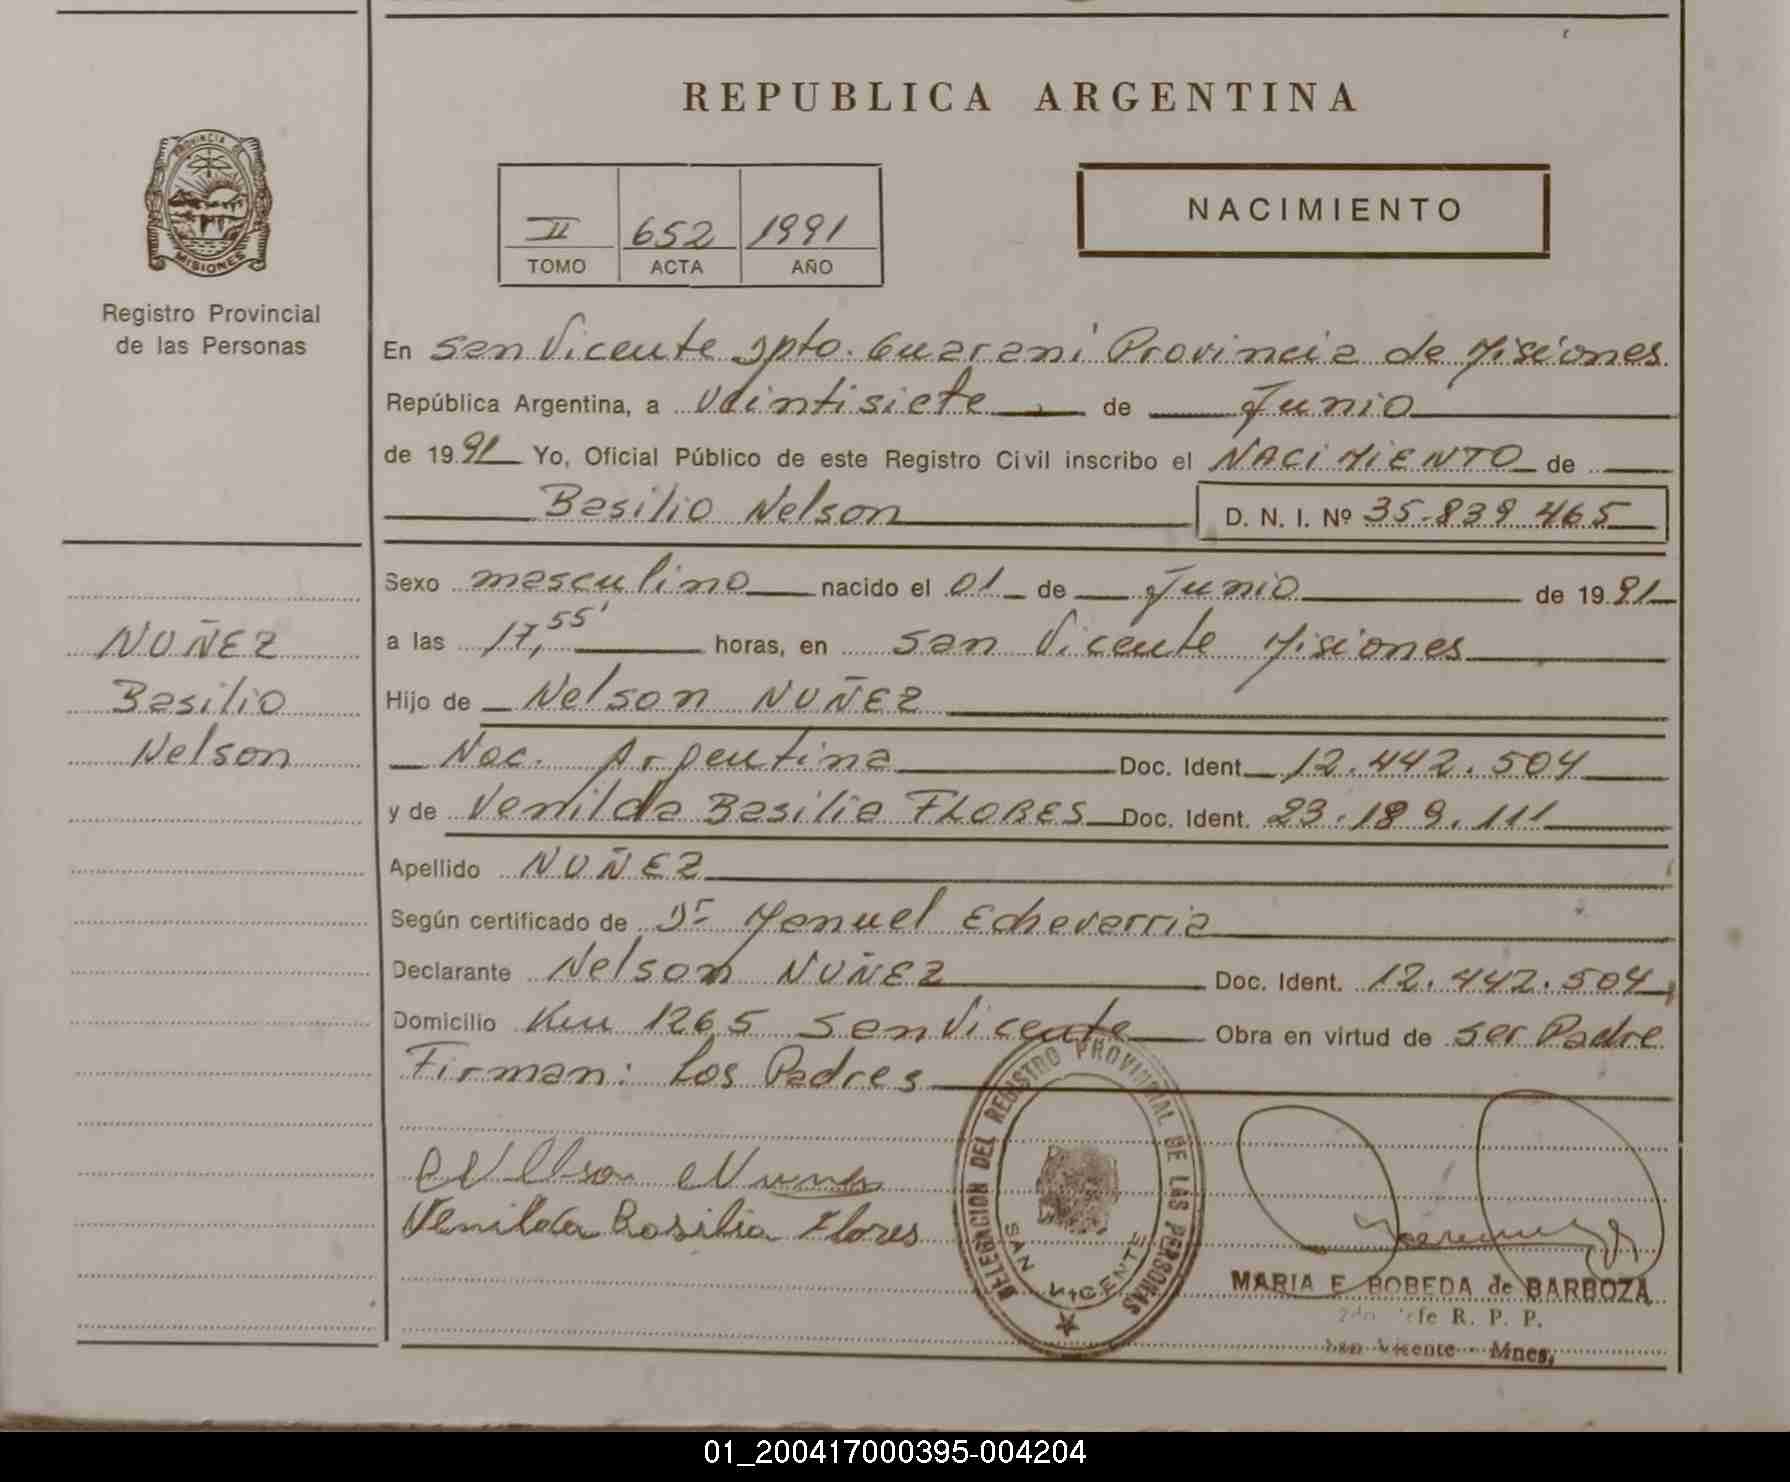 REPUBLICA ARGENTINA
PROVINCIA DE
MISIONES
Registro Provincial
de las Personas
II 652 1991
TOMO ACTA AÑO
NACIMIENTO
En San Vicente Dpto. Guaraní Provincia de Misiones
República Argentina, a veintisiete de Junio
de 1991 Yo, Oficial Público de este Registro Civil inscribo el NACIMIENTO de
Basilio Nelson D. N. I. Nº 35.839 465
Sexo masculino nacido el 01 de Junio de 1991
a las 17,55' horas, en San Vicente Misiones
NUÑEZ
Basilio
Nelson
Hijo de Nelson NUÑEZ
Nac. Argentina Doc. Ident. 12.442.504
y de Venilda Basilia FLORES Doc. Ident. 23.189.111
Apellido NUÑEZ
Según certificado de Dr Manuel Echevarria
Declarante Nelson NUÑEZ Doc. Ident. 12.442.504
Domicilio Km 1265 San Vicente Obra en virtud de ser Padre
Firman: Los Padres
Nelson Nunes
Venilda Basilia Flores
DELEGACION DEL REGISTRO PROVINCIAL DE LAS PERSONAS
SAN VICENTE
MARIA E BOBEDA de BARBOZA
2do Jefe R. P. P.
San Vicente - Mnes,
01_200417000395-004204